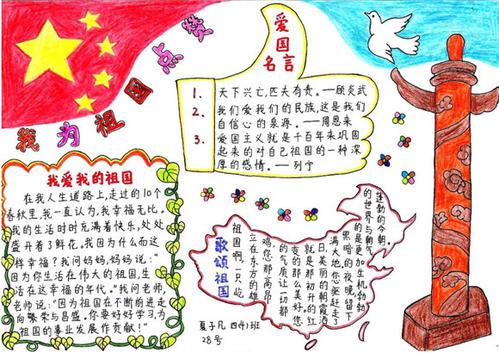 我为祖国点赞
爱国
名言
1. 天下兴亡,匹夫有责。—顾炎武
2. 我们爱我们的民族,这是我们
自信心的泉源。—周恩来
3. 爱国主义就是千百年来巩固
起来的对自己祖国的一种深
厚的感情。—列宁
我爱我的祖国
在我人生道路上,走过的10个
春秋里,我一直认为,我幸福无比。
我的生活时时充满着快乐,处处
盛开着了鲜花。我因为什么而这
样幸福?我问妈妈,妈妈说:"
因为你生活在伟大的祖国,生
活在这幸福的年代。"我问老师,
老师说:"因为祖国在不断的进走
向繁荣与昌盛。你要好好学习,为
祖国的事业发展作贡献!"
歌颂祖国
祖国啊,一只屹
立在东方的雄
鸡,您那高昂
的气质让一切都
变的那么美好,您
就是那初升的红
日,美丽的朝霞洒
满大地,你驱赶走了
黑暗的夜晚,留下
的是更加生机勃勃
的世界与朝气
蓬勃的今朝,
夏子凡 四(4)班
28号